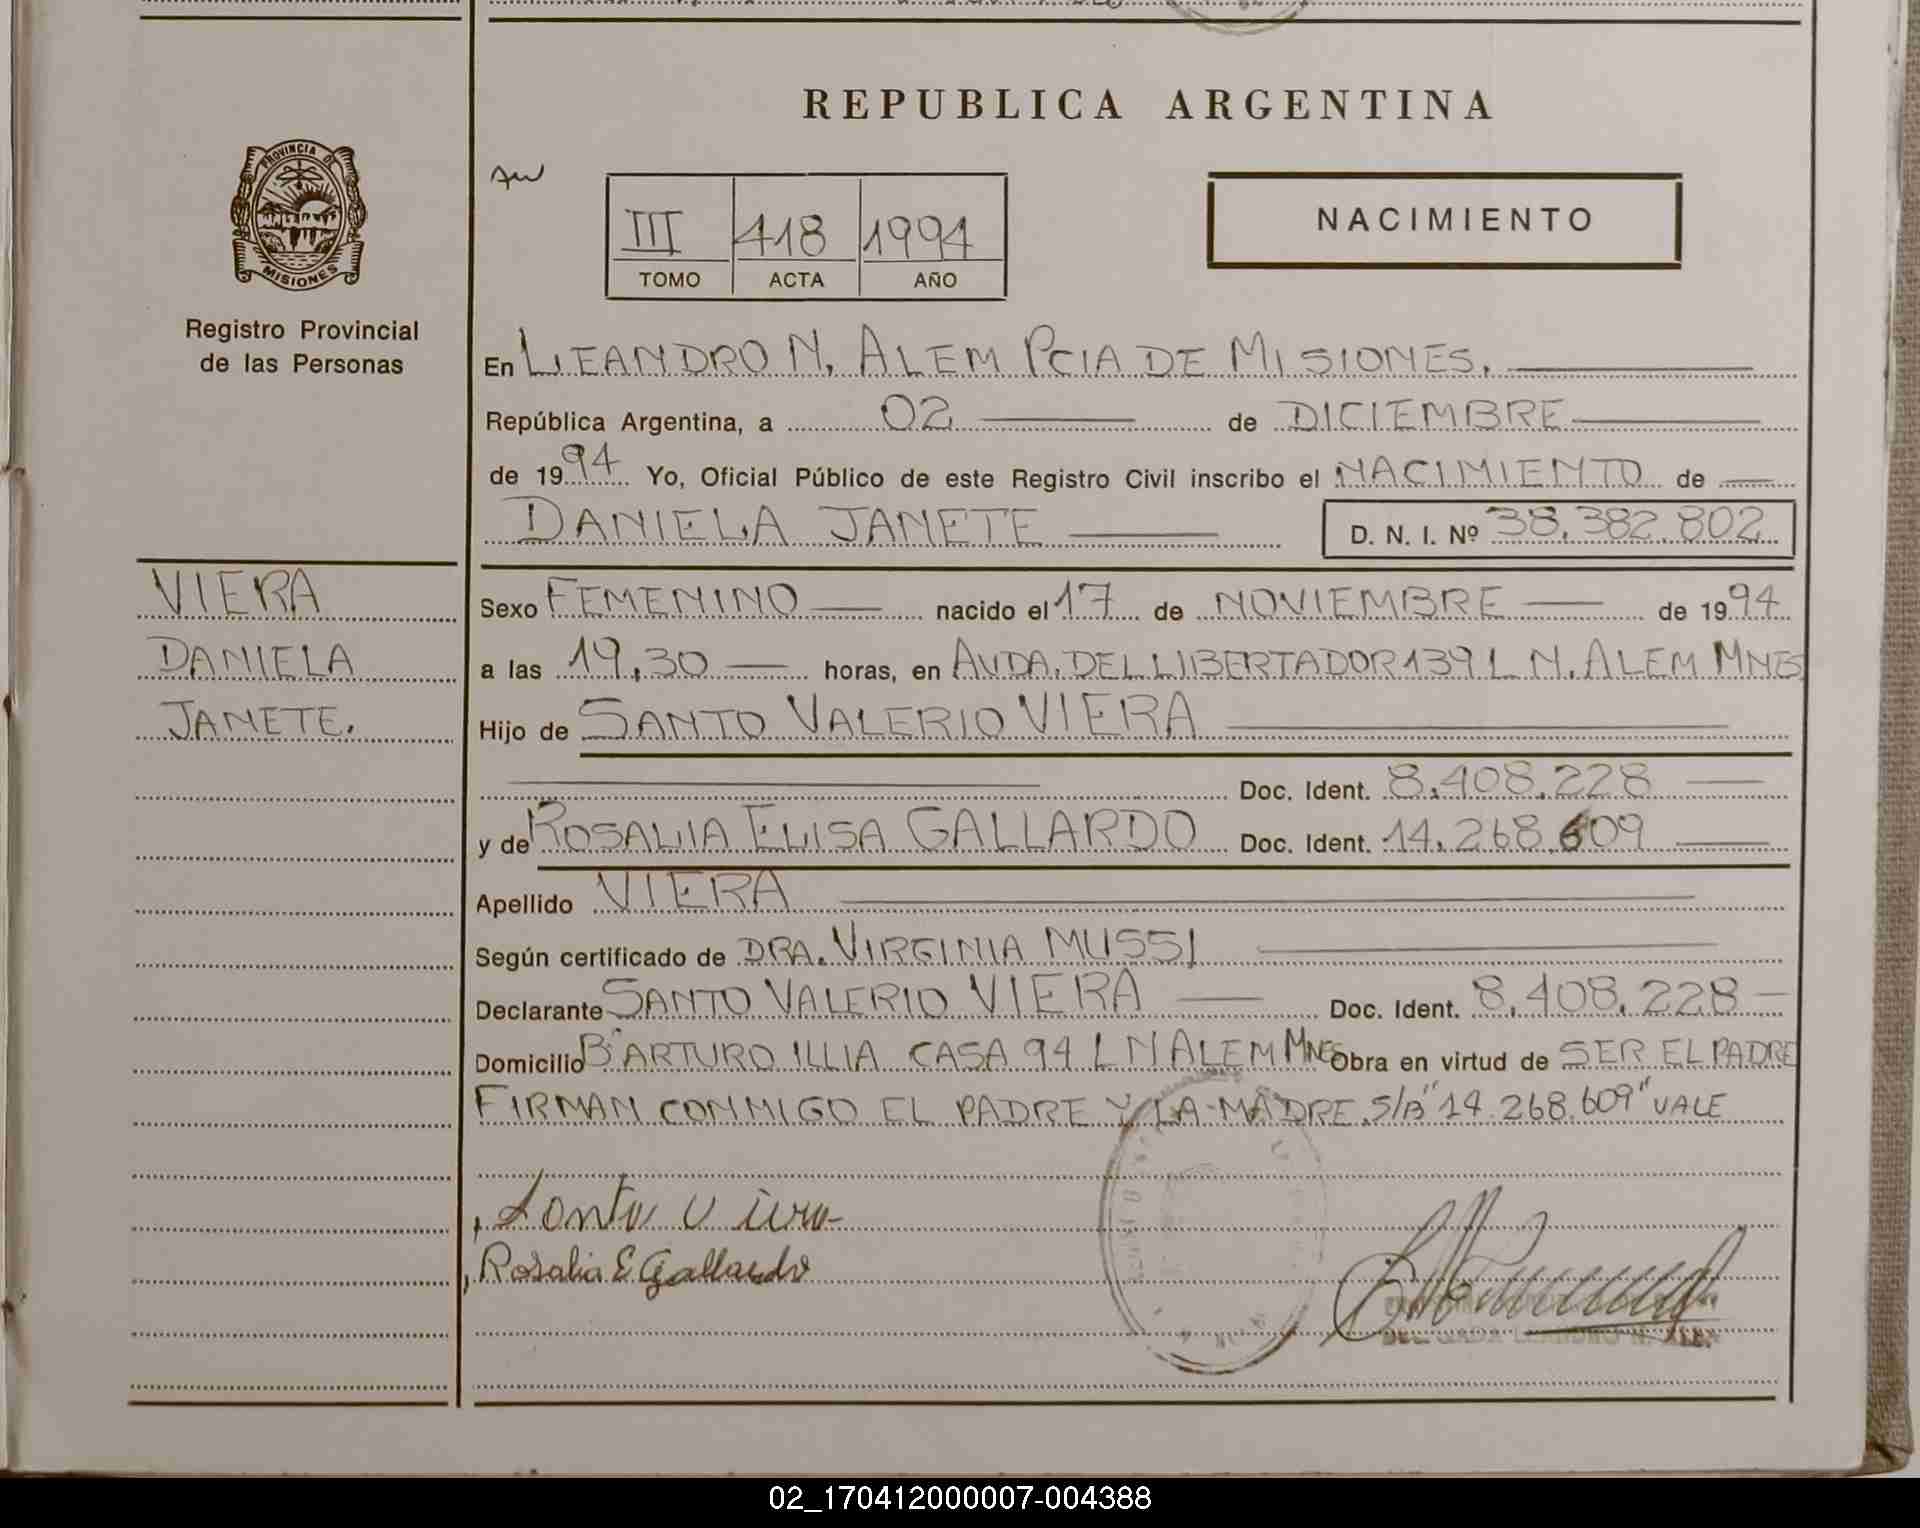 REPUBLICA ARGENTINA
PROVINCIA DE
MISIONES
Registro Provincial
de las Personas
III 418 1994
TOMO ACTA AÑO
NACIMIENTO
En LEANDRO N. ALEM PCIA DE MISIONES.
República Argentina, a 02 de DICIEMBRE
de 1994 Yo, Oficial Público de este Registro Civil inscribo el NACIMIENTO de
DANIELA JANETE D. N. I. Nº 38.382.802
VIERA
DANIELA
JANETE.
Sexo FEMENINO nacido el 17 de NOVIEMBRE de 1994
a las 19,30 horas, en AVDA. DEL LIBERTADOR 139 L N. ALEM MNES
Hijo de SANTO VALERIO VIERA
Doc. Ident. 8.408.228
y de ROSALIA ELISA GALLARDO Doc. Ident. 14.268.609
Apellido VIERA
Según certificado de DRA. VIRGINIA MUSSI
Declarante SANTO VALERIO VIERA Doc. Ident. 8.408.228
Domicilio Bº ARTURO ILLIA CASA 94 L N ALEM MNES Obra en virtud de SER EL PADRE
FIRMAN CONMIGO EL PADRE Y LA MADRE. S/B "14.268.609" VALE
Santo Viera
Rosalia E Gallardo
02_170412000007-004388